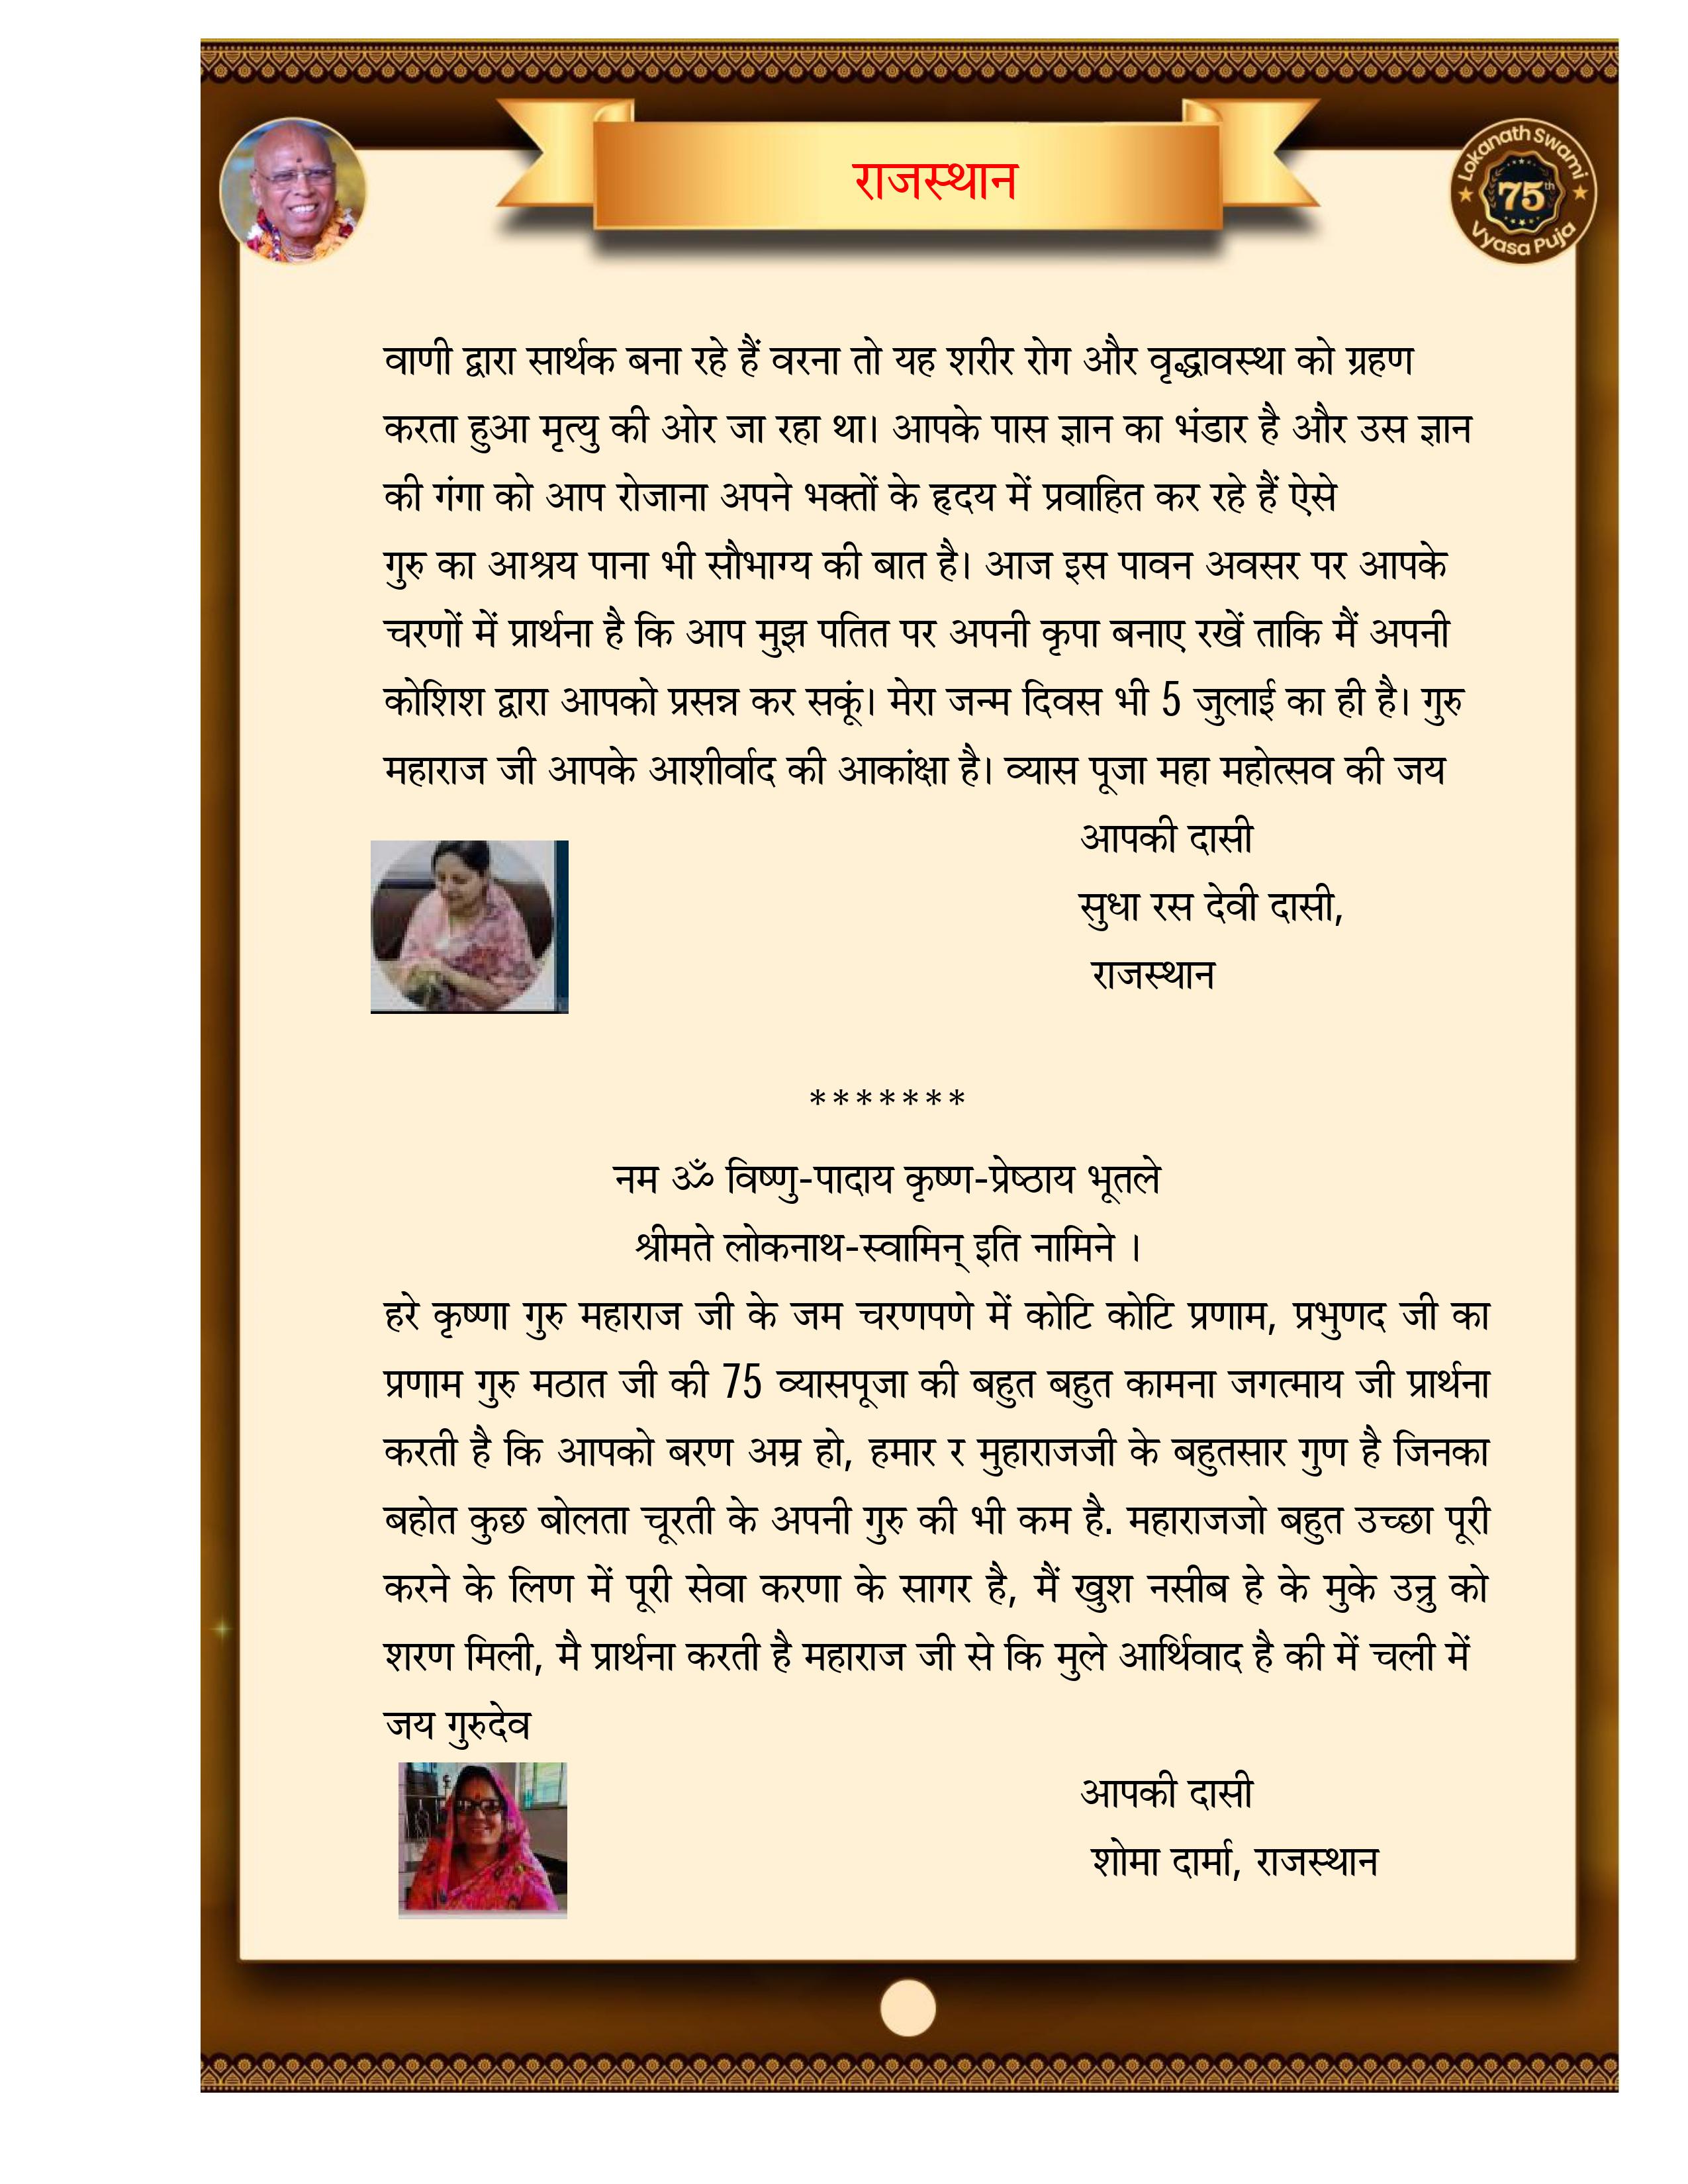 राजस्थान
Lokanath Swami
75th
Vyasa Puja
वाणी द्वारा सार्थक बना रहे हैं वरना तो यह शरीर रोग और वृद्धावस्था को ग्रहण
करता हुआ मृत्यु की ओर जा रहा था। आपके पास ज्ञान का भंडार है और उस ज्ञान
की गंगा को आप रोजाना अपने भक्तों के हृदय में प्रवाहित कर रहे हैं ऐसे
गुरु का आश्रय पाना भी सौभाग्य की बात है। आज इस पावन अवसर पर आपके
चरणों में प्रार्थना है कि आप मुझ पतित पर अपनी कृपा बनाए रखें ताकि मैं अपनी
कोशिश द्वारा आपको प्रसन्न कर सकूं। मेरा जन्म दिवस भी 5 जुलाई का ही है। गुरु
महाराज जी आपके आशीर्वाद की आकांक्षा है। व्यास पूजा महा महोत्सव की जय
आपकी दासी
सुधा रस देवी दासी,
राजस्थान
*******
नम ॐ विष्णु-पादाय कृष्ण-प्रेष्ठाय भूतले
श्रीमते लोकनाथ-स्वामिन् इति नामिने ।
हरे कृष्णा गुरु महाराज जी के जम चरणपणे में कोटि कोटि प्रणाम, प्रभुणद जी का
प्रणाम गुरु मठात जी की 75 व्यासपूजा की बहुत बहुत कामना जगत्माय जी प्रार्थना
करती है कि आपको बरण अम्र हो, हमार र मुहाराजजी के बहुतसार गुण है जिनका
बहोत कुछ बोलता चूरती के अपनी गुरु की भी कम है. महाराजजो बहुत उच्छा पूरी
करने के लिण में पूरी सेवा करणा के सागर है, मैं खुश नसीब हे के मुके उन्रु को
शरण मिली, मै प्रार्थना करती है महाराज जी से कि मुले आर्थिवाद है की में चली में
जय गुरुदेव
आपकी दासी
शोमा दार्मा, राजस्थान